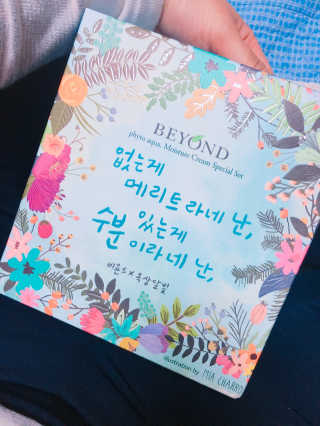 BEYOND
phyto aqua, Moisture Cream Special Set
없는게
메리트라네 난,
있는게
수분이라네 난,
비욘드x옥상달빛
illustration by MIA CHARRO